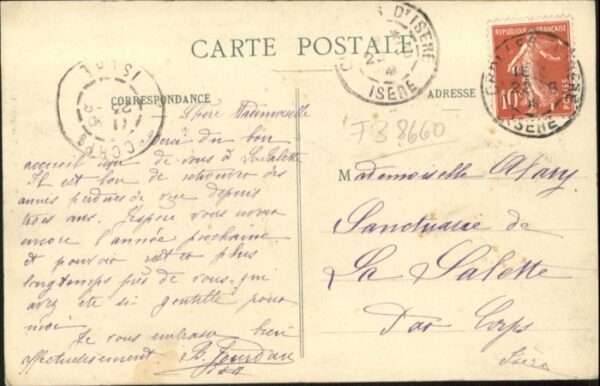 CARTE POSTALE
CORRESPONDANCE
ADRESSE
REPUBLIQUE FRANÇAISE
10
ISERE
F3 8660
Chère Mademoiselle
Merci du bon
accueil que de vous à La Salette
Il est bon de retrouver des
amies perdues de vue depuis
trois ans. J'espère vous revoir
encore l'année prochaine
et pouvoir rester plus
longtemps près de vous qui
avez été si gentille pour
moi
Je vous embrasse bien
affectueusement
Jourdan
Mademoiselle Alary
Sanctuaire de
La Salette
Par Corps
Isère